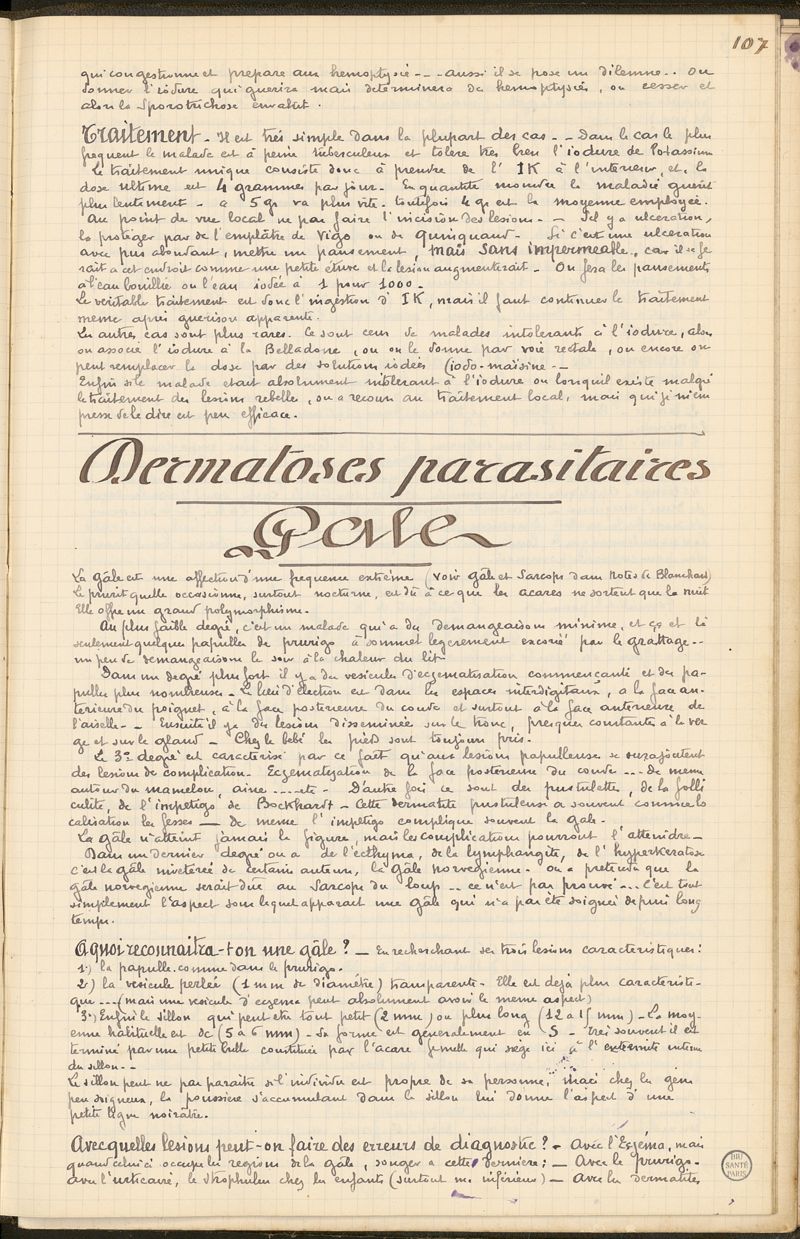 107
qui congestionne et prepare aux hemoptysie - - - aussi il se pose un dilemne . . Ou
donner l'iodure qui guerira mais determinera des hemoptysies, ou cesser et
alors la Sporotrichose envahit .
Traitement - Il est très simple dans la plupart des cas - - Dans le cas le plus
frequent le malade est à peine tuberculeux et tolère très bien l'iodure de Potassium
Le traitement unique consiste donc à prendre de l' IK à l'interieur, et la
dose ultime est 4 grammes par jour. En quantité moindre la maladie guerit
plus lentement - à 5 gr va plus vite. toutefois 4 gr est la moyenne employée.
Au point de vue local ne pas faire l'incision des lesions. - - S'il y a ulceration,
la protéger par de l'emplâtre de Vigo ou de Quinquaud - Si c'est une ulceration
avec pus abondant, mettre un pansement, mais sans impermeable, car il se fe
rait à cet endroit comme une petite étuve et la lesion augmenterait - On fera les pansements
à l'eau bouillie ou l'eau iodée à 1 pour 1000 -
Le veritable traitement est donc l'ingestion d' IK, mais il faut continuer le traitement
meme après guerison apparente.
Les autres cas sont plus rares. Ce sont ceux de malades intolerants à l'iodure, alors
on associe l'iodure à la Belladone, ou on le donne par voie rectale, ou encore on
peut remplacer la dose par des solutions iodées (iodo-maïsine - -
Enfin si le malade etait absolument intolerant à l'iodure ou lorsqu'il existe malgré
le traitement des lesions rebelles, on a recours au traitement local, mais qui je m'em
presse de le dire est peu efficace.
Dermatoses parasitaires
Gale
La gâle est une affection d'une frequence extrême (voir gâle et Sarcopte dans Notes de Blanchard)
Le prurit qu'elle occasionne, surtout nocturne, est dû à ce que les acares ne sortent que la nuit
Elle offre un grand polymorphisme.
Au plus faible degré, c'est un malade qui a des demangeaisons minime, et ça et là
seulement quelques papules de prurigo à sommet legerement excorié par le grattage - -
un peu de demangeaisons le soir à la chaleur du lit -
Dans un degré plus fort il y a des vesicules d'eczematisation commençante et des pa-
pulles plus nombreuses - Le lieu d'élection est dans les espaces interdigitaux, à la face an-
terieure du poignet, à la face posterieure du coude et surtout à la face anterieure de
l'aiselle - - Ensuite il y a des lesions disseminées sur le tronc, presque constantes à la ver
ge et sur le gland - Chez le bébé les pieds sont toujours pris.
Le 3e degré est caracterisé par ce fait qu'aux lesions papulleuses se surajoutent
des lesions de complication - Eczematisation de la face posterieure du coude - - - De meme
autour du mamelon, aine - - - etc - D'autre fois ce sont des pustulettes, de la folli
culite, de l'impetigo de Bockhardt - Cette dermatite pustuleuse a souvent comme lo
calisation les fesses - De meme l'impetigo complique souvent la gale -
La gâle n'atteint jamais la figure, mais les complications pourront l'atteindre -
Dans un dernier degré on a de l'ecthyma, de la lymphangite, de l'hyperkeratose
c'est la gâle invetérée de certains auteurs, la gâle norvegienne - on a pretendu que la
gâle norvegienne serait due au Sarcopte du loup - - ce n'est pas prouvé - - - C'est tout
simplement l'aspect sous lequel apparait une gâle qui n'a pas été soignée depuis long
temps.
A quoi reconnaitra-t-on une gâle ? - En recherchant ses trois lesions caracteristiques :
1.) la papulle comme dans le prurigo.
2.) la vesicule perlée (1 mm de diamêtre) transparente - Elle est dejà plus caracteristi-
que - - - (mais une vesicule d'eczema peut absolument avoir le meme aspect)
3.) Enfin le sillon qui peut etre tout petit (2 mm) ou plus long (12 à 15 mm) - La moy-
enne habituelle est de (5 à 6 mm) - Sa forme est generalement en S - très souvent il est
terminé par une petite bulle constituée par l'acare femelle qui siège ici à l'extremité interne
du sillon - -
Le sillon peut ne pas paraitre si l'individu est propre de sa personne, mais chez les gens
peu soigneux, la poussière s'accumulant dans le sillon lui donne l'aspect d'une
petite ligne noirâtre.
Avec quelles lesions peut-on faire des erreurs de diagnostic ? - Avec l'Eczéma, mais
quand celui ci occupe les regions de la gâle, songer à cette dernière ; - Avec le prurigo -
avec l'urticaire, le strophulus chez les enfants (surtout m. inférieurs) - Avec les dermatites
BIU
SANTÉ
PARIS